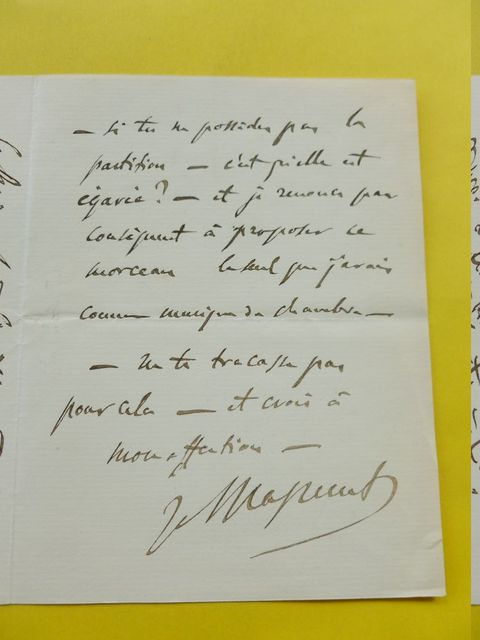 — si tu ne possèdes pas la
partition — c'est qu'elle est
égarée ? — et je renonce par
conséquent à proposer ce
morceau le seul que j'avais
comme musique de chambre —
— ne te tracasse pas
pour cela — et crois à
mon affection —
J. Massenet